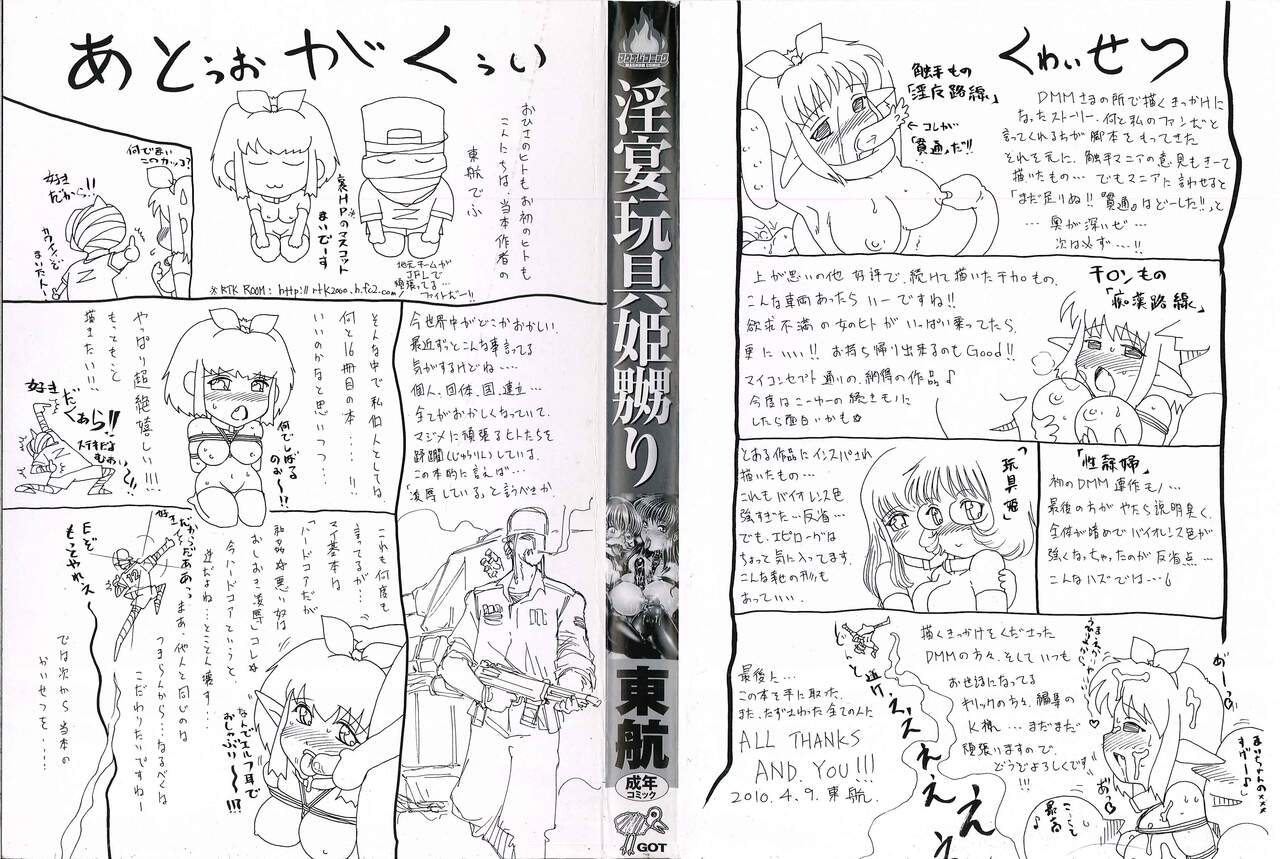 あとぅおがくぅい
おひさのヒトもお初のヒトも
こんにちは、当本作者の
東航でふ
哀HPのマスコット
まいでーす
地元チームが
JFLで
頑張ってる…
ファイトだー!!
※RTK ROOM: http://rtk2000.h.fc2.com/
何でまい
このカッコ?
好き
だから!!
今世界中がどこかおかしい。
最近ずっとこんな事言ってる
気がするけどね‥‥
個人、団体、国、連立…
全てがおかしくなっていて、
マジメに頑張るヒトたちを
蹂躙(じゅうりん)している。
この本的に言えば…
「凌辱している。」と言うべきか。
そんな中で私個人としては
何と16冊目の本‥‥!!
いいのかなと思いつつ…
やっぱり超絶嬉しい!!!
もっともっと
描きたい!!
何でしばる
のぉ〜!?
好き
だくぁら〜!!
これも何度も
言ってるが…
マイ基本は
「ハードコアだが
和姦☆悪い奴は
おしおき凌辱」コレ☆
今ハードコアというと、
逆だよね…とことん壊す…
まあ、他人と同じのは
つまらんから…なるべくは
こだわりたいですねー
では次から当本の
かいせつを‥‥
好き
だからだあああっ
Eぞ
もっとやれぇえ〜
なんでエルフ耳で
おしゃぶり
〜!!?
マグナムコミック
MAGNUM COMIC
淫宴玩具姫嬲り
東航
成年
コミック
GOT
くわいせつ
触手もの
「淫辱路線」
←コレが
「貫通」だ!!
DMMさまの所で描くきっかけに
なったストーリー。何と私のファンだと
言ってくれる方が脚本をもってきた
それを元に、触手マニアの意見もきーて
描いたもの… でもマニアに言わせると
「まだ足りぬ!!『貫通』はどーした!!」と
…奥が深いぜ…
次は必ず…!!
チカンもの
「痴漢路線」
上が思いの他 好評で、続けて描いたチカンもの。
こんな車両あったら いーですね!!
欲求不満の女のヒトが いっぱい乗ってたら、
更にいい!! お持ち帰り出来るのもGood!!
マイコンセプト通りの、納得の作品♪
今度はこーゆーの続きものに
したら面白いかも☆
「玩具姫」
とある作品にインスパされ
描いたもの…
これもバイオレンス色
強すぎた…反省…
でも、エピローグは
ちょって気に入ってます。
こんな愛の形も
あっていい。
「性隷婦」
初のDMM連作もノ…
最後の方が やたら説明臭く、
全体が暗めでバイオレンス色が
強くなっちゃったのが 反省点…
こんなハズでは…
描くきっかけをくださった
DMMの方々、そしていつも
お世話になってる
キリックの方々、編集の
K様… まだまだ
頑張りますので、
どうぞよろしくです
!!!
最後に…
この本を手に取った、
また、たずさわった全ての人に
ALL THANKS
AND YOU!!!
2010.4.9. 東航.
と逃げ
ぇぇぇえぇえ
あ〜っ♡
まいちゃんの×××
すげー♪
ここも
最高
♪